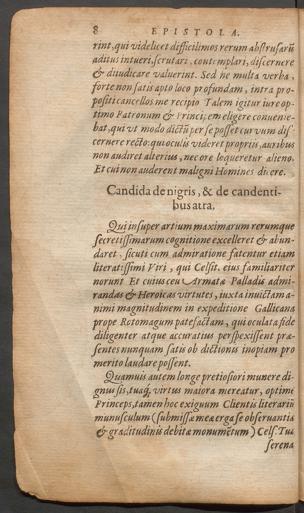 8 EPISTOLA.
rint, qui videlicet difficilimos rerum abstrusarũ
aditus intueri, scrutari, contemplari, discernere
& diiudicare valuerint. Sed ne multa verba
forte non satis apto loco profundam, intra pro-
positi cancellos me recipio Talem igitur iure op-
timo Patronum & Principem eligere conuenie-
bat, qui vt modo dictũ per se posset curvum dis-
cernere recto: qui oculis videret propriis, auribus
non audiret alterius, nec ore loqueretur alieno.
Et cui non auderent maligni Homines dicere.
Candida de nigris, & de candenti-
bus atra.
Qui insuper artium maximarum rerumque
secretissimarum cognitione excelleret & abun-
daret, sicuti cum admiratione fatentur etiam
literatissimi Viri, qui Celsit. eius familiariter
norunt Et cuius ceu Armatæ Palladis admi-
randas & Heroicas virtutes, iuxta inuictam a-
nimi magnitudinem in expeditione Gallicana
prope Rotomagum patefactam, qui oculata fide
diligenter atque accuratius perspexissent præ-
sentes nunquam satis ob dictionis inopiam pro
merito laudare possent.
Quamuis autem longe pretiosiori munere di-
gnus sis, tuaq; virtus maiora mereatur, optime
Princeps, tamen hoc exiguum Clientis literarii
munusculum (submissæ meæ erga se obseruantiæ
& gratitudinis debitæ monumẽtum) Cels. Tua
serena